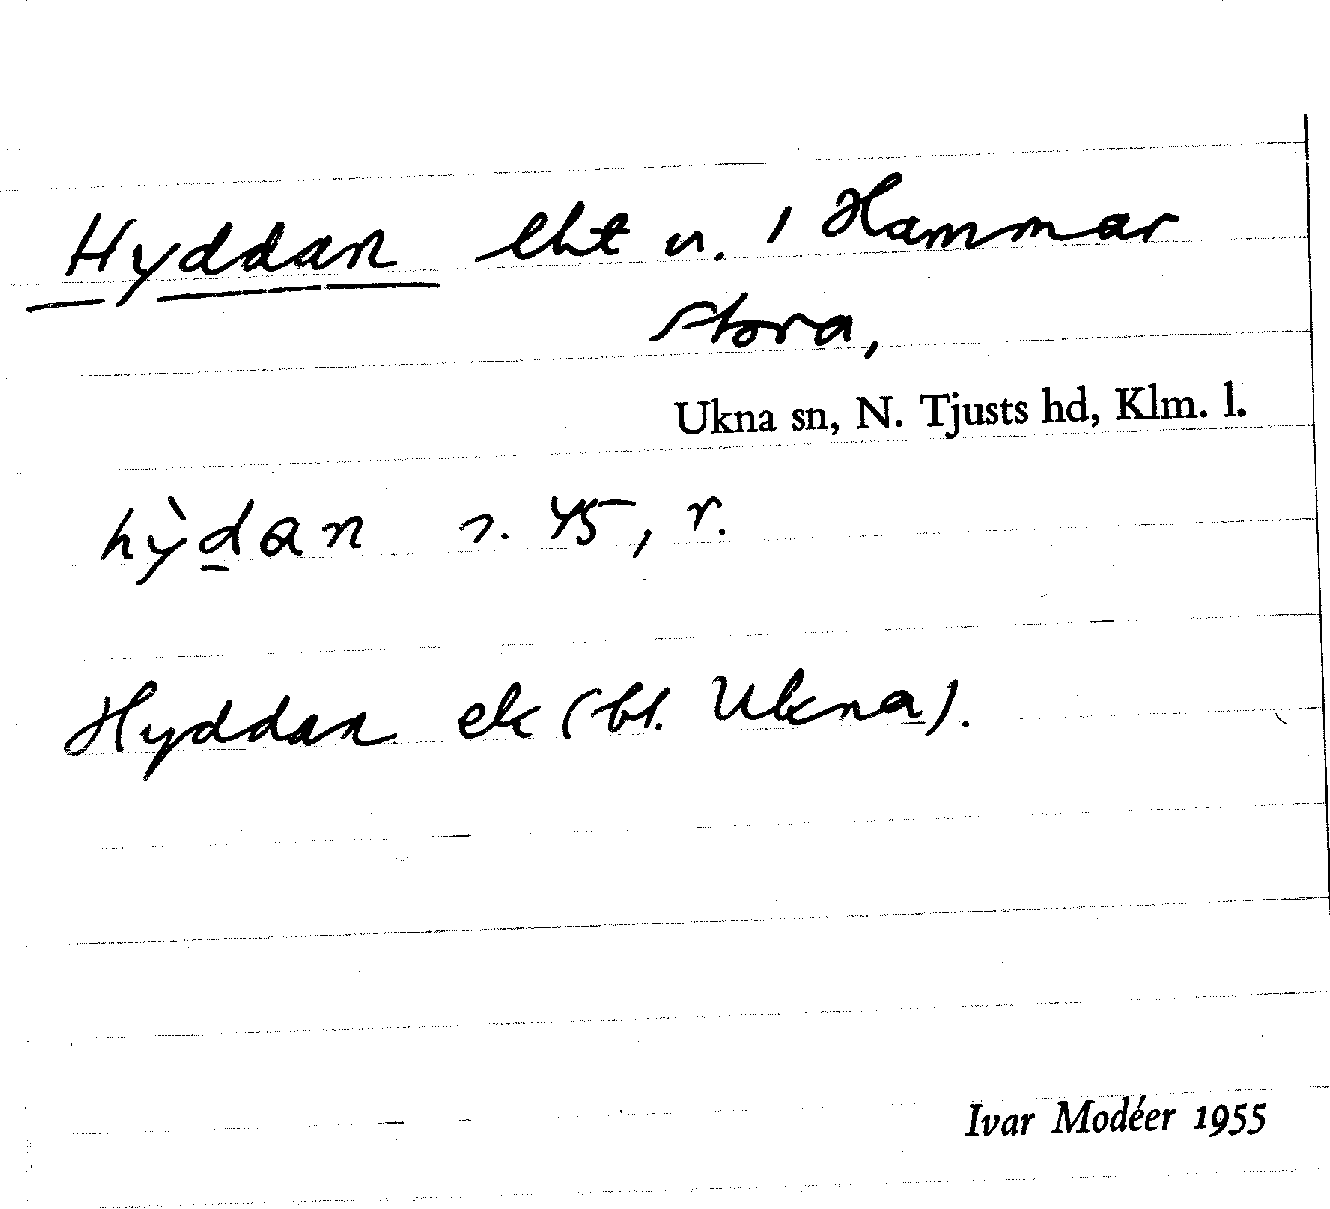 Hyddan lht u. / Hammar
Stora,
Ukna sn, N. Tjusts hd, Klm. l.
hỳd̲an s. 45, r.
Hyddan ek (bl. Ukna).
Ivar Modéer 1955